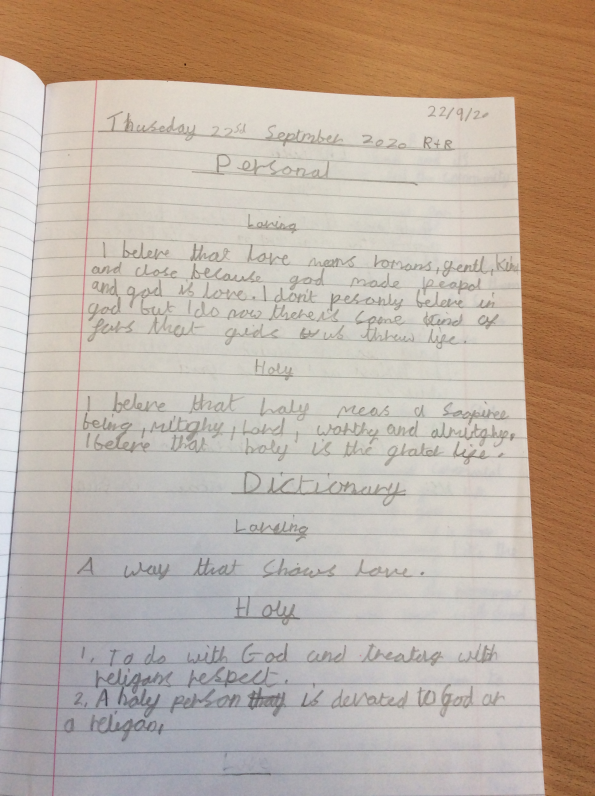 22/9/20
Thuseday 22st Septmber 2020 R+R
Personal
Loving
I beleve that love means romans, gentl, kind
and close because god made peapol
and god is love. I don't pesonly beleve in
god but I do now there's some kind of
fors that gids us threw life.
Holy
I beleve that holy meas a
being, mitghy, Lord, worthy and almitghy.
I beleve that holy is the grater life.
Dictionary
Loveing
A way that shows love.
Holy
1. To do with God and treating with
religans respect.
2. A holy person that is devated to God or
a religan.